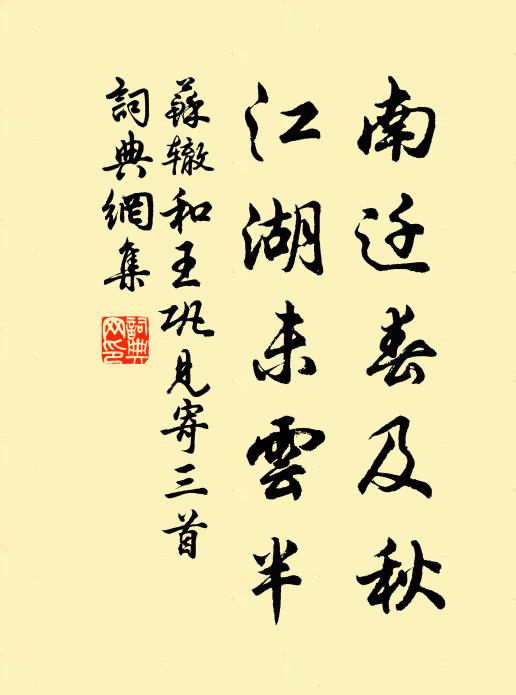 南迁春及秋
江湖未雲半
蘇辙和王巩見寄三首
詞典網集
詞典
网印